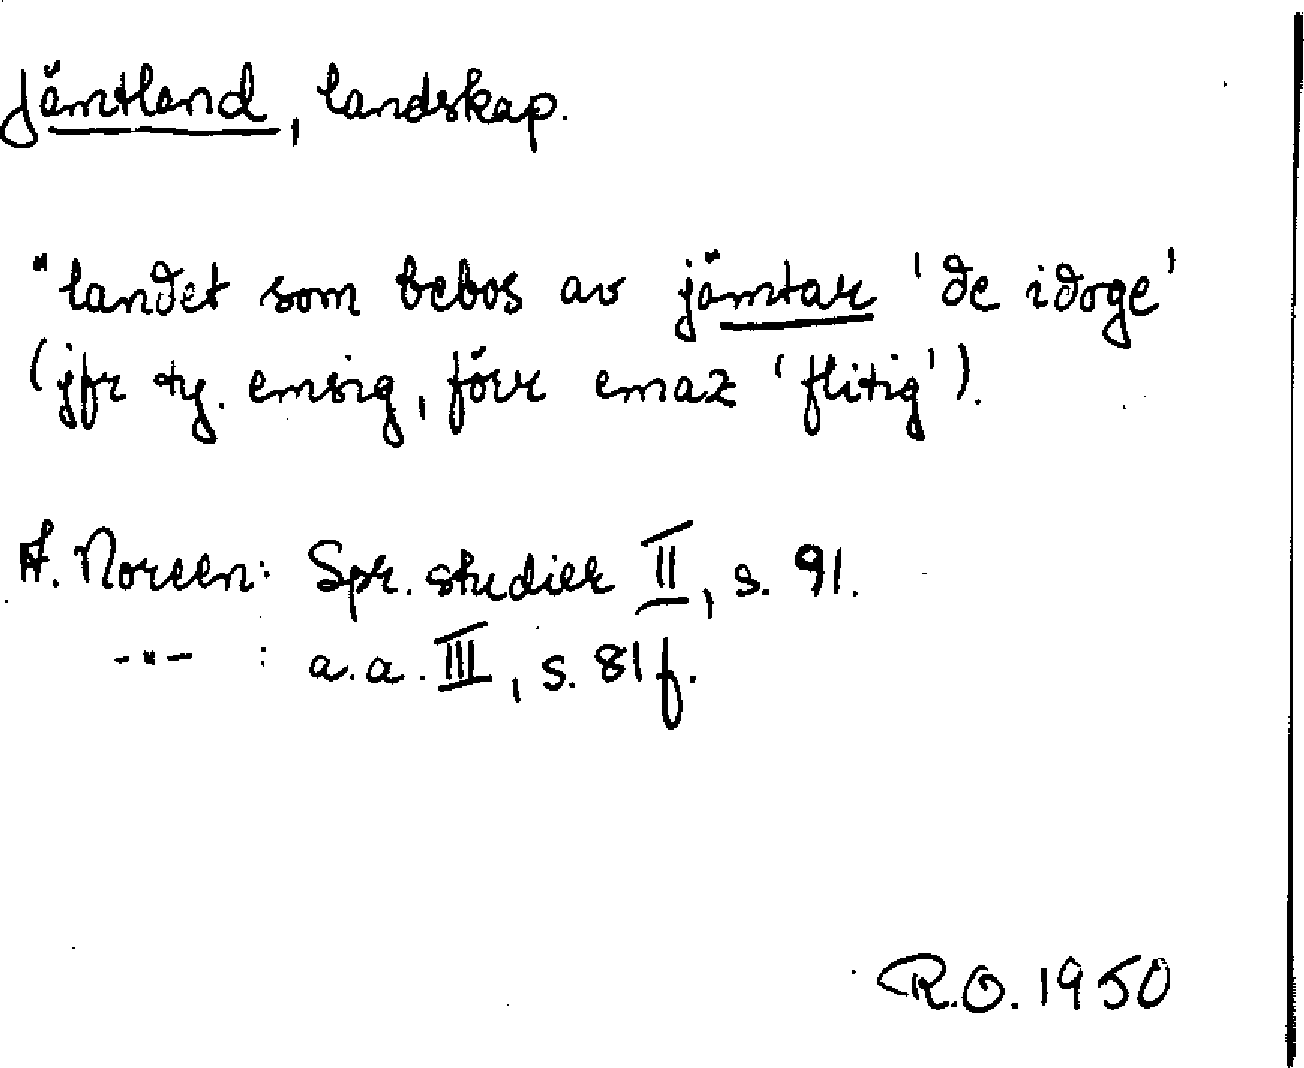 Jämtland, landskap.
"landet som bebos av jämtar 'de idoge'
(jfr ty. emsig, förr emaz 'flitig').
A. Noreen: Spr. studier II, s. 91.
-"- : a.a. III, s. 81 f.
R.O. 1950